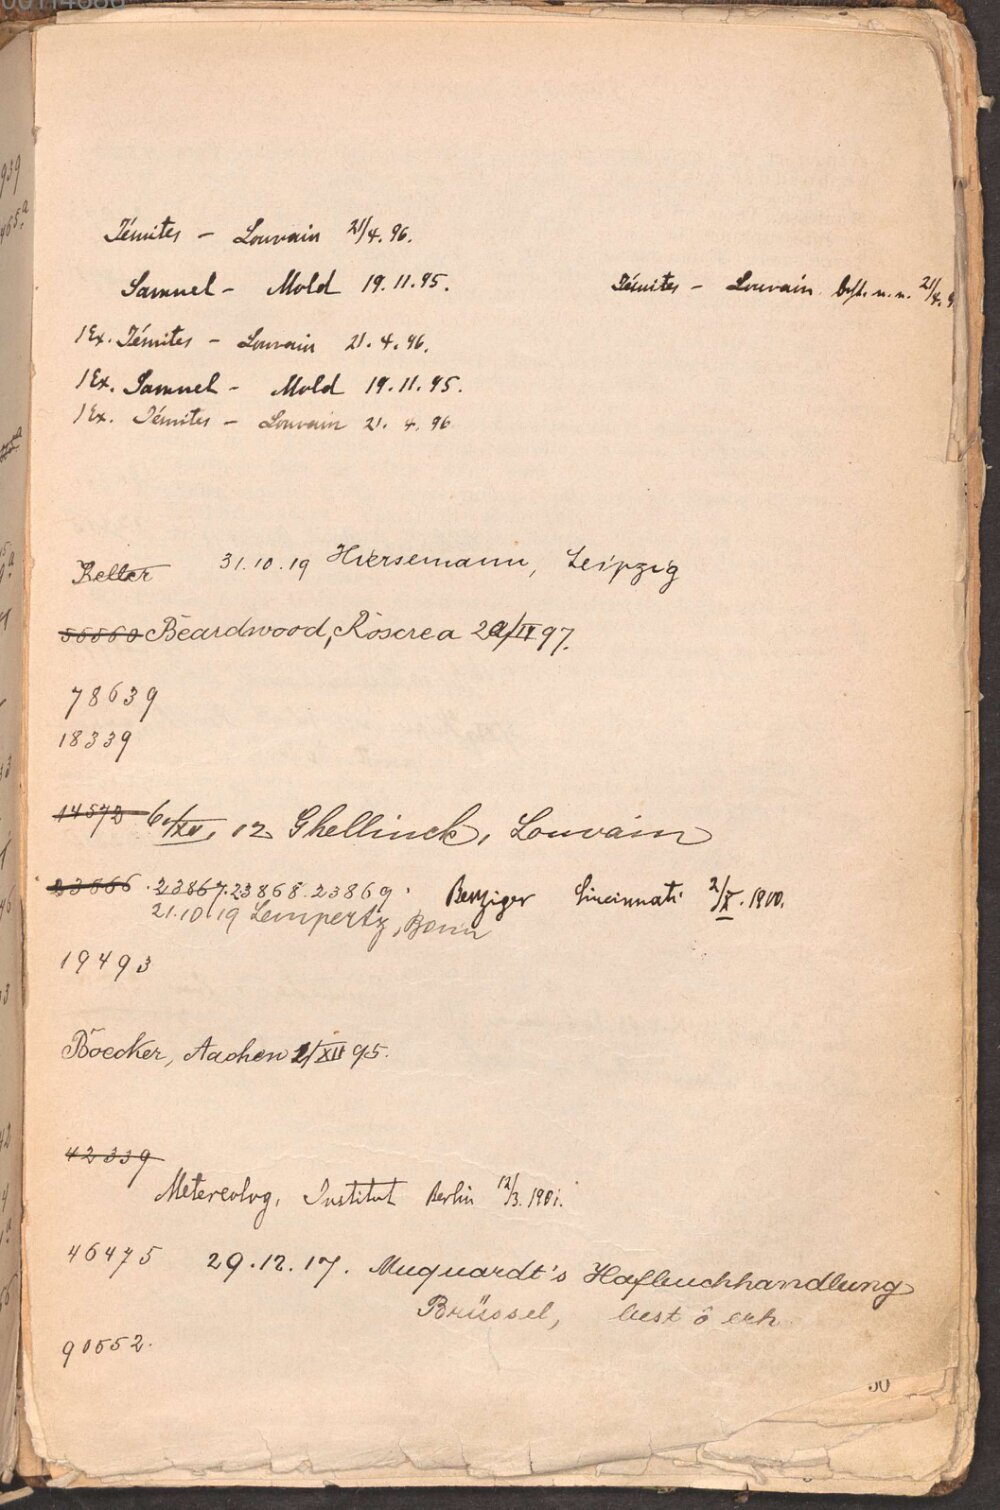 00114686
Jésuites – Louvain 21/4. 96.
Samuel – Mold 19.11.95.
Jésuites – Louvain best. n. n. 21/4. 9
1 Ex. Jésuites – Louvain 21. 4. 96.
1 Ex. Samuel – Mold 19.11.95.
1 Ex. Jésuites – Louvain 21. 4. 96
Relter 31.10.19 Hiersemann, Leipzig
56860 Beardwood, Roscrea 29/IV 97.
78639
18339
14572 6./XII. 12 Ghellinck, Louvain
23866. 23867. 23868. 23869. Benziger Cincinnati 2/X. 1900.
21.10.19 Lempertz, Bonn
19493
Boecker, Aachen 2/XII 95.
42339
Metereolog. Institut Berlin 12/3. 1901.
46475 29.12.17. Muquardt's Hofbuchhandlung
Brüssel, best ô erh.
90552.
50